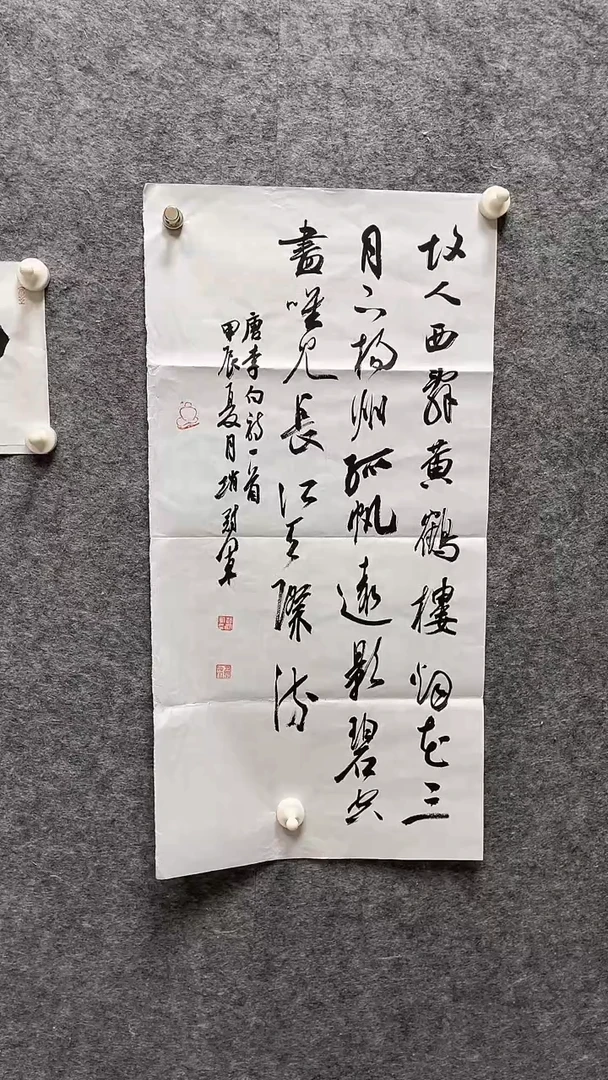 故人西辭黄鶴樓烟花三
月下揚州孤帆遠影碧空
盡唯見長江天際流
唐李白詩一首
甲辰夏月